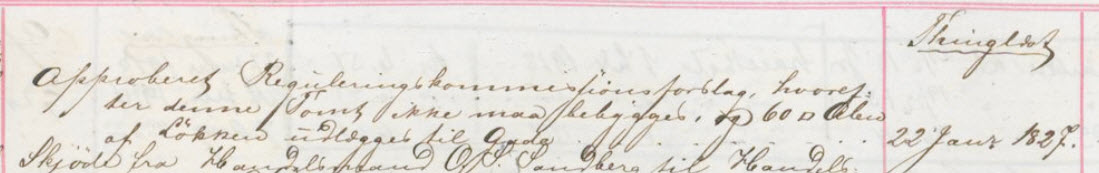 Thinglæst
Approberet Reguleringskommissionsforslag, hvoref-
ter denne Tomt ikke maa bebygges, og 60 □ Alen
af Løkken udlægges til Gade . . . . . . 22 Janr 1827.
Skjöde fra Handelsmand O. S. Sandberg til Handels-